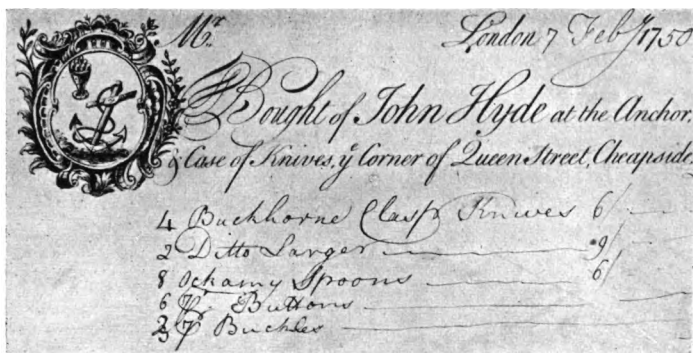 Mr. London 7 Feby 1750
Bought of John Hyde at the Anchor,
& Case of Knives, ye Corner of Queen Street, Cheapside.
4 Buckhorne Clasp Knives 6/
2 Ditto Larger 9/
8 Ochamy Spoons 6/
6 Buttons
Buckles